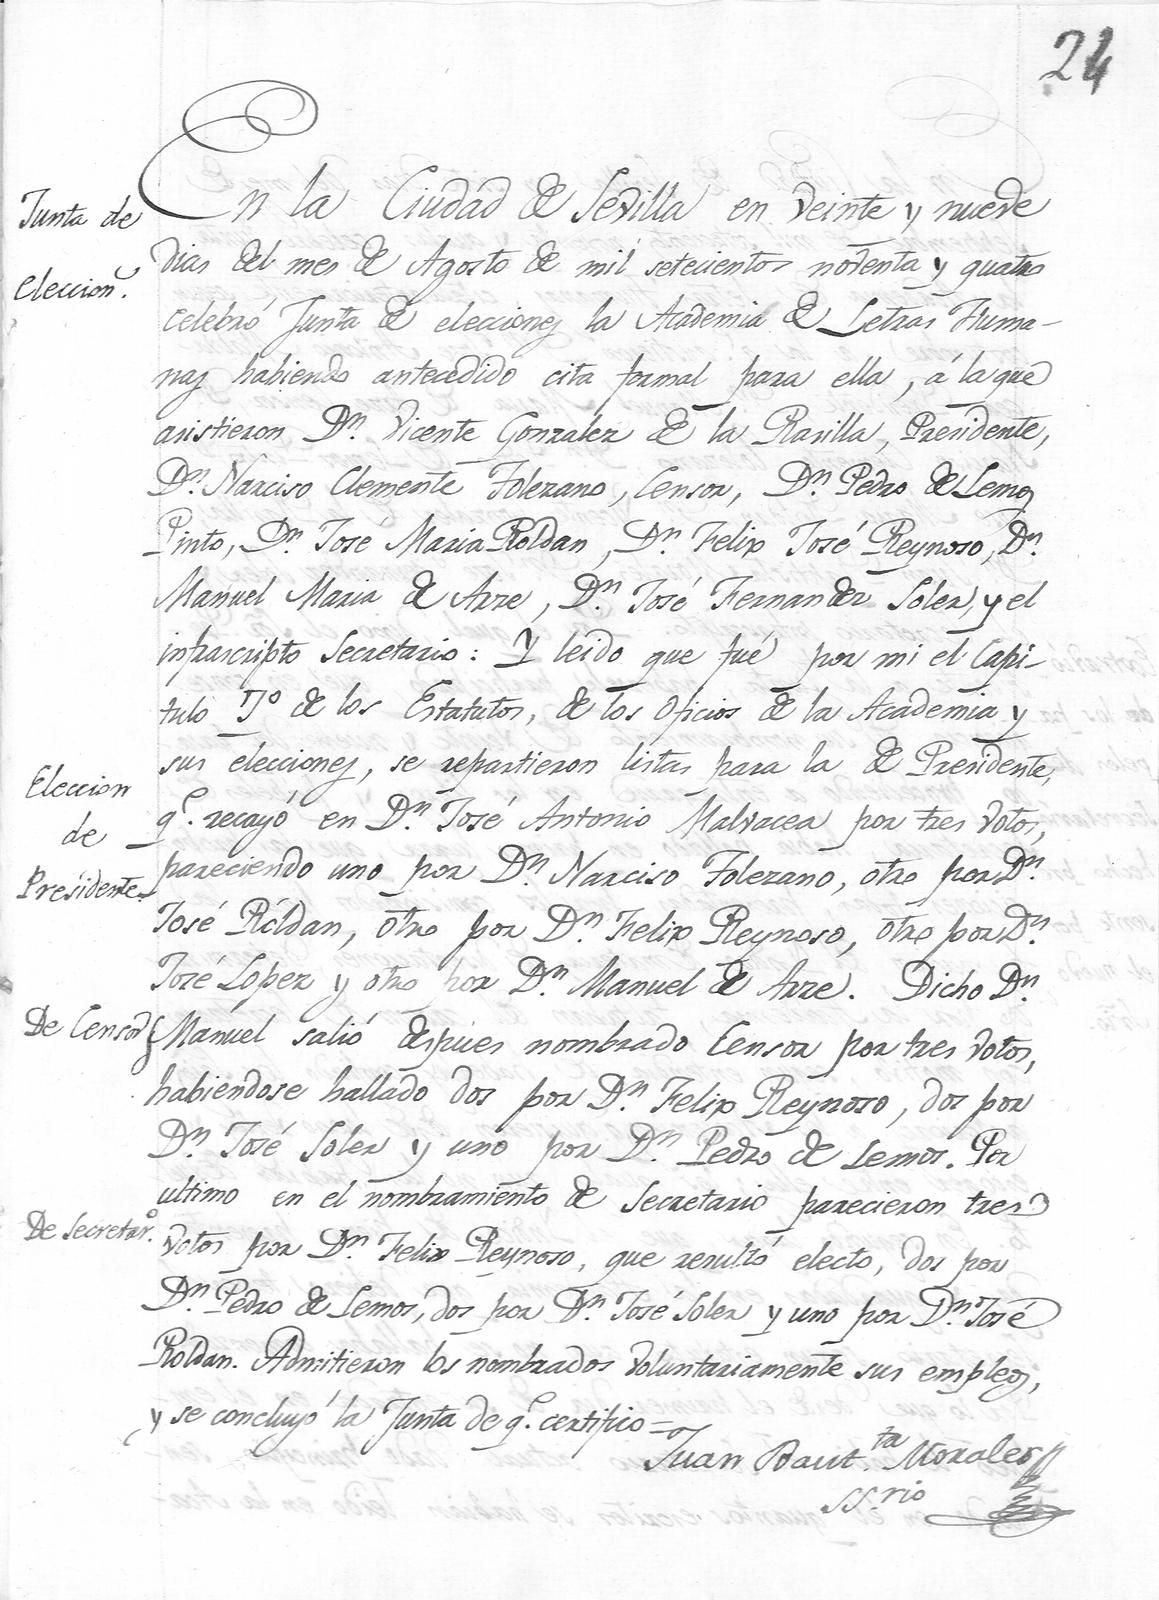 24
En la Ciudad de Sevilla en veinte y nueve
Junta de
eleccion.
dias del mes de Agosto de mil setecientos noventa y quatro
celebró Junta de elecciones la Academia de Letras Huma-
nas habiendo antecedido cita formal para ella, á la que
asistieron Dn. Vicente Gonzalez de la Rasilla, Presidente,
Dn. Narciso Clemente Tolezano, Censor, Dn. Pedro de Lemos
Pinto, Dn. José Maria Roldan, Dn. Felix José Reynoso, Dn.
Manuel Maria de Arze, Dn. José Fernandez Soler, y el
infrascripto Secretario: Y leido que fué por mi el Capi-
tulo 7º de los Estatutos, de los Oficios de la Academia y
sus elecciones, se repartieron listas para la de Presidente,
Eleccion
de
Presidente
qe. recayó en Dn. José Antonio Malvacea por tres votos,
pareciendo uno por Dn. Narciso Tolezano, otro por Dn.
José Róldan, otro por Dn. Felix Reynoso, otro por Dn.
José Lopez y otro por Dn. Manuel de Arze. Dicho Dn.
De Censor
Manuel salió despues nombrado Censor por tres votos,
habiendose hallado dos por Dn. Felix Reynoso, dos por
Dn. José Soler y uno por Dn. Pedro de Lemos. Por
ultimo en el nombramiento de Secretario parecieron tres
De Secretaro.
votos por Dn. Felix Reynoso, que resultó electo, dos por
Dn. Pedro de Lemos, dos por Dn. José Soler y uno por Dn. José
Roldan. Admitieron los nombrados voluntariamente sus empleos,
y se concluyó la Junta de qe. certifico =
Juan Baut.ta Morales
SS.rio